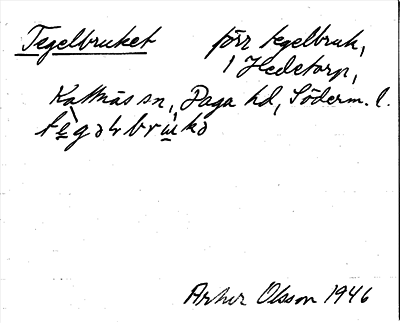 Tegelbruket förr tegelbruk,
i Hedetorp,
Kattnäs sn, Daga hd, Söderm. l.
tegəlbrukə
Arthur Olsson 1946